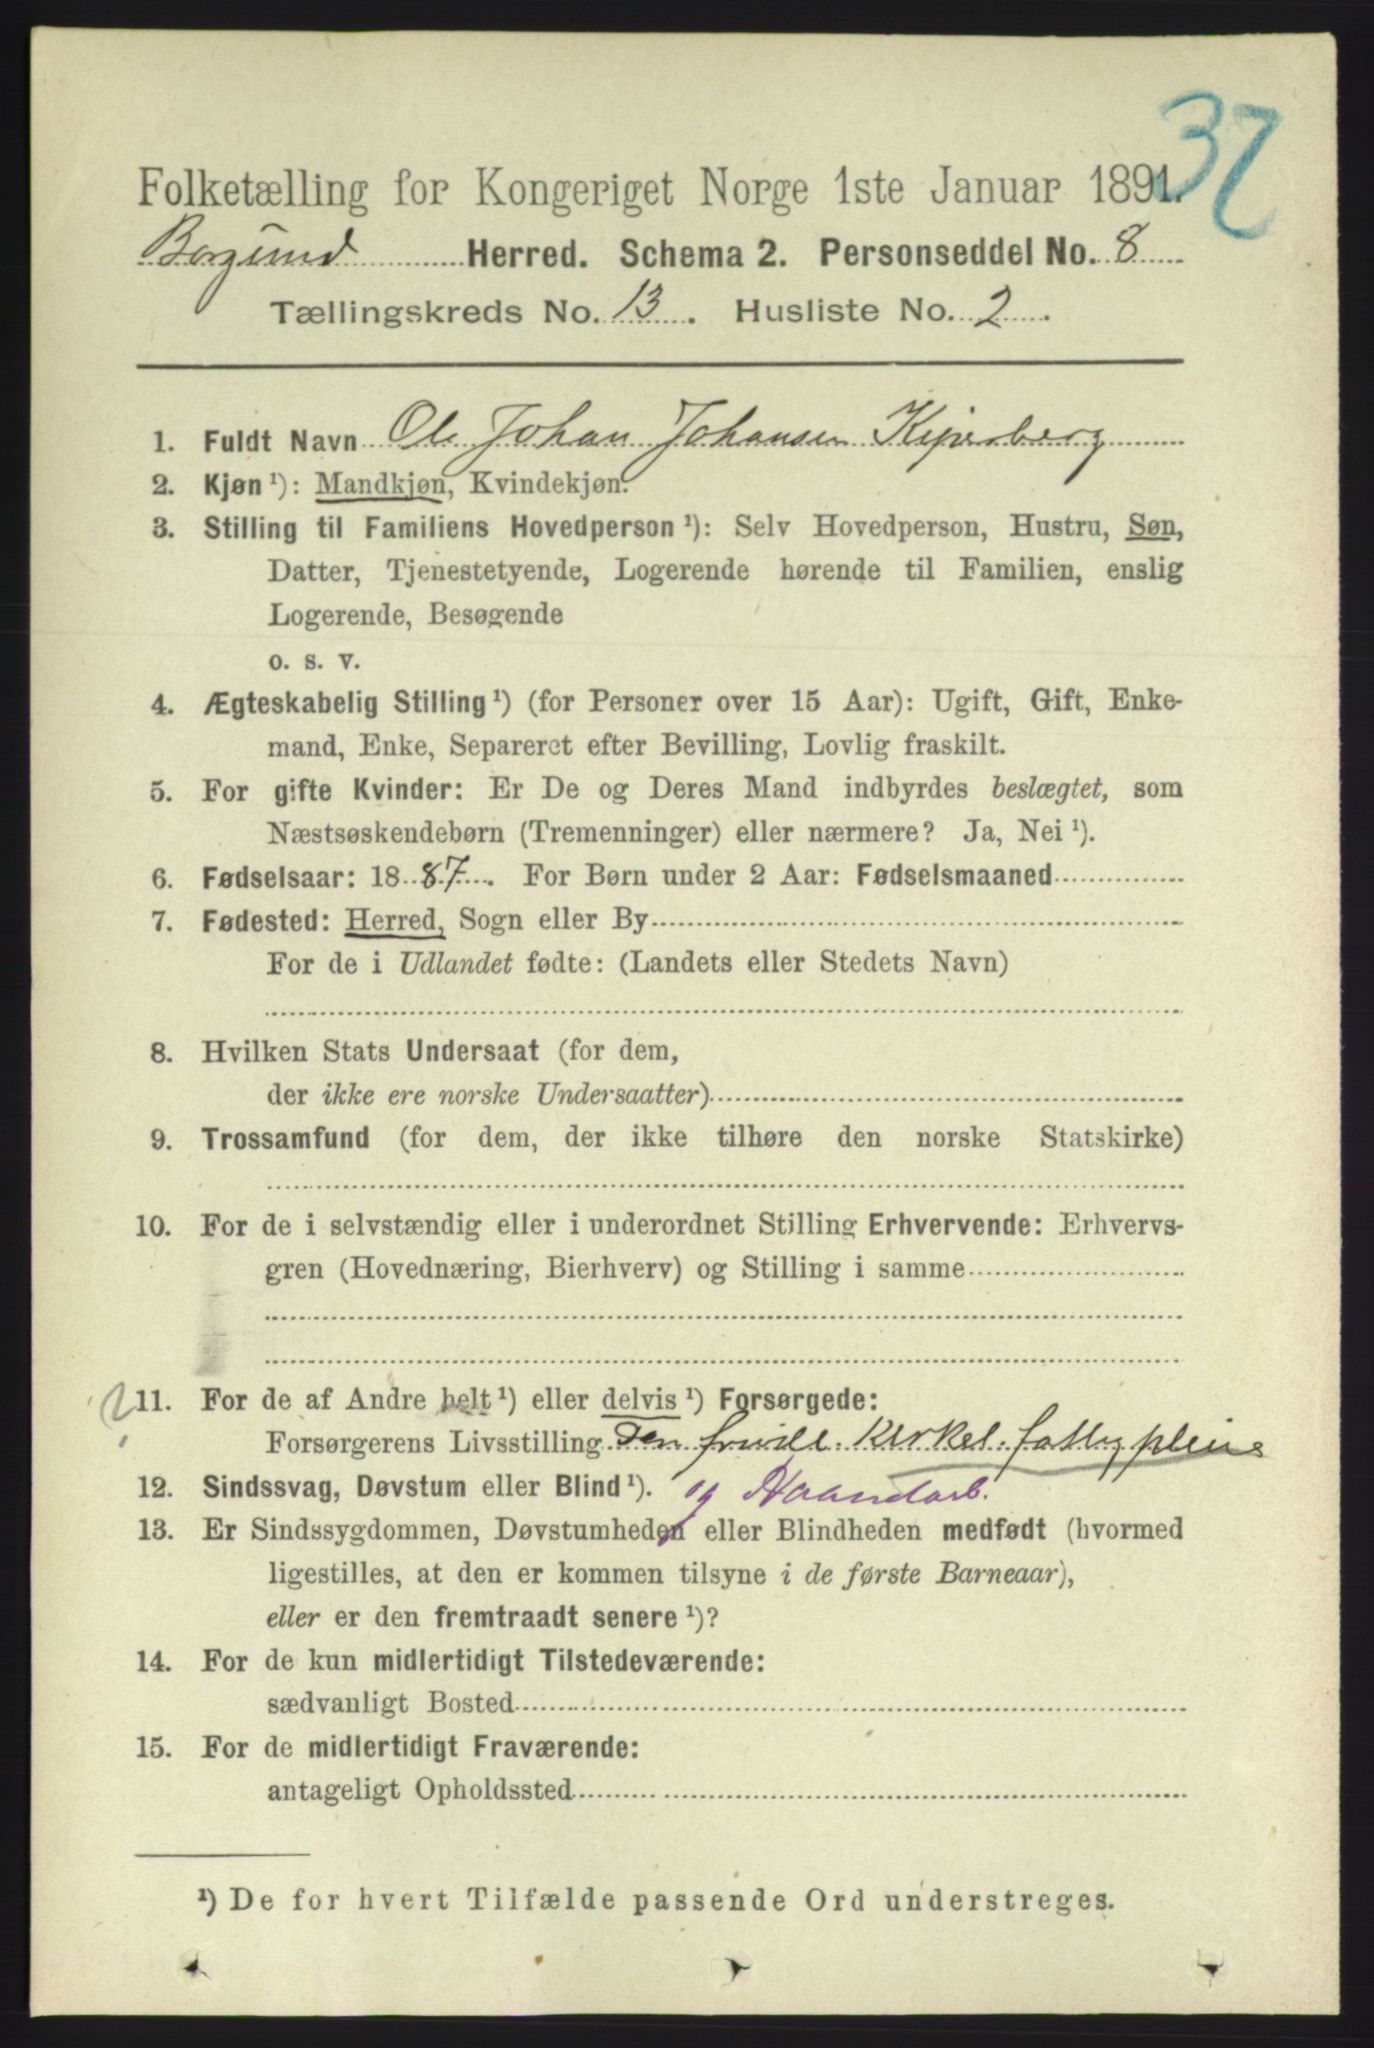 37
Folketælling for Kongeriget Norge 1ste Januar 1891.
Borgund Herred. Schema 2. Personseddel No. 8
Tællingskreds No. 13. Husliste No. 2.
1. Fuldt Navn Ole Johan Johansen
2. Kjøn ¹): Mandkjøn, Kvindekjøn.
3. Stilling til Familiens Hovedperson ¹): Selv Hovedperson, Hustru, Søn,
Datter, Tjenestetyende, Logerende hørende til Familien, enslig
Logerende, Besøgende
o. s. v.
4. Ægteskabelig Stilling ¹) (for Personer over 15 Aar): Ugift, Gift, Enke-
mand, Enke, Separeret efter Bevilling, Lovlig fraskilt.
5. For gifte Kvinder: Er De og Deres Mand indbyrdes beslægtet, som
Næstsøskendebørn (Tremenninger) eller nærmere? Ja, Nei ¹).
6. Fødselsaar: 1887. For Børn under 2 Aar: Fødselsmaaned
7. Fødested: Herred, Sogn eller By
For de i Udlandet fødte: (Landets eller Stedets Navn)
8. Hvilken Stats Undersaat (for dem,
der ikke ere norske Undersaatter)
9. Trossamfund (for dem, der ikke tilhøre den norske Statskirke)
10. For de i selvstændig eller i underordnet Stilling Erhvervende: Erhvervs-
gren (Hovednæring, Bierhverv) og Stilling i samme
11. For de af Andre helt ¹) eller delvis ¹) Forsørgede:
Forsørgerens Livsstilling
12. Sindssvag, Døvstum eller Blind ¹). og Haandarb.
13. Er Sindssygdommen, Døvstumheden eller Blindheden medfødt (hvormed
ligestilles, at den er kommen tilsyne i de første Barneaar),
eller er den fremtraadt senere ¹)?
14. For de kun midlertidigt Tilstedeværende:
sædvanligt Bosted
15. For de midlertidigt Fraværende:
antageligt Opholdssted
¹) De for hvert Tilfælde passende Ord understreges.